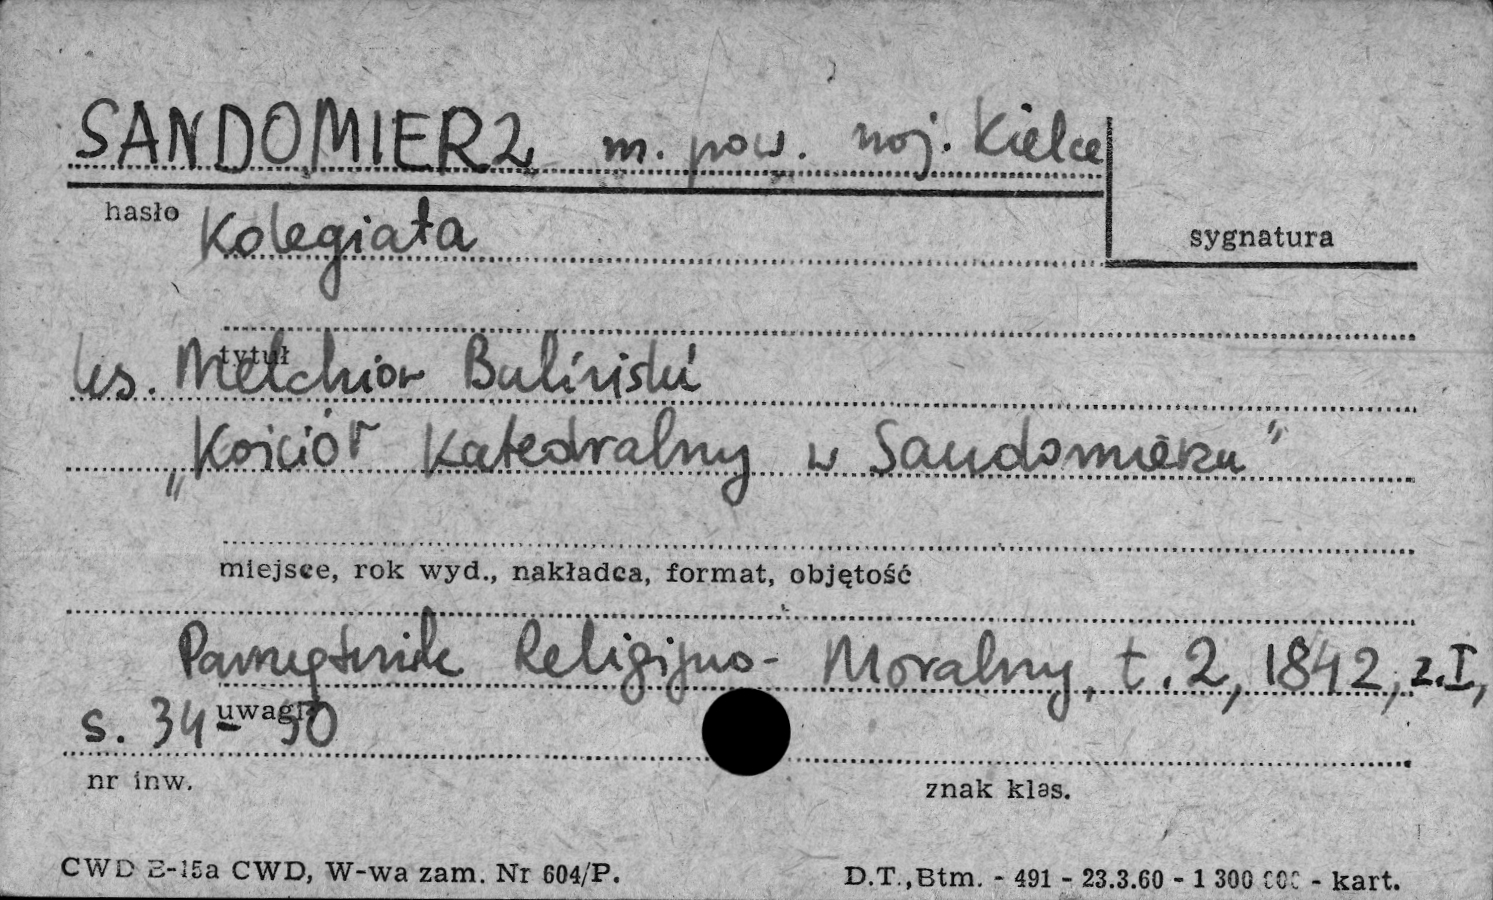 SANDOMIERZ m. pow. woj. Kielce
hasło
Kolegiata
sygnatura
tytuł
ks. Melchior Buliński
„Kościół Katedralny w Sandomierzu"
miejsce, rok wyd., nakładca, format, objętość
Pamiętnik Religijno-Moralny, t. 2, 1842, z. I,
uwagi
s. 34-50
nr inw.
znak klas.
CWD E-15a CWD, W-wa zam. Nr 604/P.
D.T., Btm. - 491 - 23.3.60 - 1 300 000 - kart.